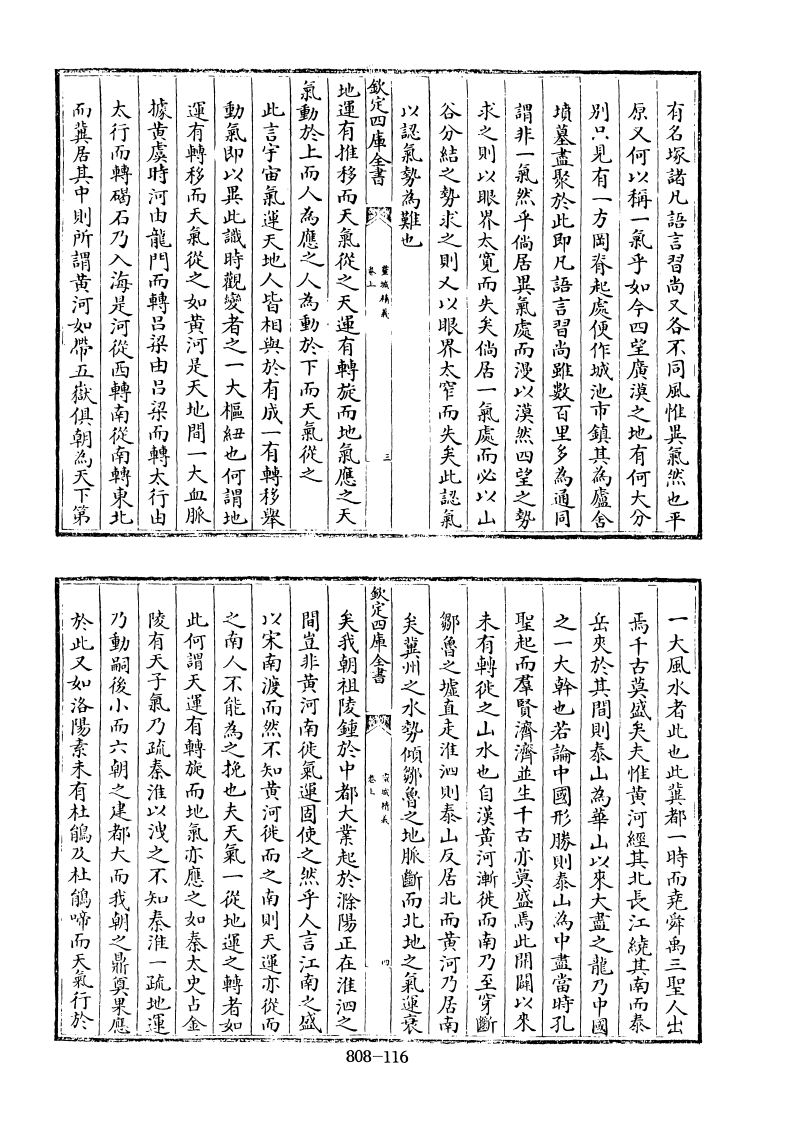 有名塚諸凡語言習尚又各不同風惟異氣然也平
原又何以稱一氣乎如今四望廣漠之地有何大分
別只見有一方岡脊起處便作城池市鎮其為廬舍
墳墓盡聚於此即凡語言習尚雖數百里多為通同
謂非一氣然乎倘居異氣處而漫以漠然四望之勢
求之則以眼界太寬而失矣倘居一氣處而必以山
谷分結之勢求之則又以眼界太窄而失矣此認氣
以認氣勢為難也
欽定四庫全書
靈城精義
卷上
三
地運有推移而天氣從之天運有轉旋而地氣應之天
氣動於上而人為應之人為動於下而天氣從之
此言宇宙氣運天地人皆相與於有成一有轉移舉
動氣即以異此識時觀變者之一大樞紐也何謂地
運有轉移而天氣從之如黃河是天地間一大血脈
據黃虞時河由龍門而轉呂梁由呂梁而轉太行由
太行而轉碣石乃入海是河從西轉南從南轉東北
而冀居其中則所謂黃河如帶五嶽俱朝為天下第
一大風水者此也此冀都一時而堯舜禹三聖人出
焉千古莫盛矣夫惟黃河經其北長江繞其南而泰
岳夾於其間則泰山為華山以來大盡之龍乃中國
之一大幹也若論中國形勝則泰山為中盡當時孔
聖起而羣賢濟濟並生千古亦莫盛焉此開闢以來
未有轉徙之山水也自漢黃河漸徙而南乃至穿斷
鄒魯之墟直走淮泗則泰山反居北而黃河乃居南
矣冀州之水勢傾鄒魯之地脈斷而北地之氣運衰
欽定四庫全書
靈城精義
卷上
四
矣我朝祖陵鍾於中都大業起於滁陽正在淮泗之
間豈非黃河南徙氣運固使之然乎人言江南之盛
以宋南渡而然不知黃河徙而之南則天運亦從而
之南人不能為之挽也夫天氣一從地運之轉者如
此何謂天運有轉旋而地氣亦應之如秦太史占金
陵有天子氣乃疏秦淮以洩之不知秦淮一疏地運
乃動嗣後小而六朝之建都大而我朝之鼎奠果應
於此又如洛陽素未有杜鵑及杜鵑啼而天氣行於
808-116